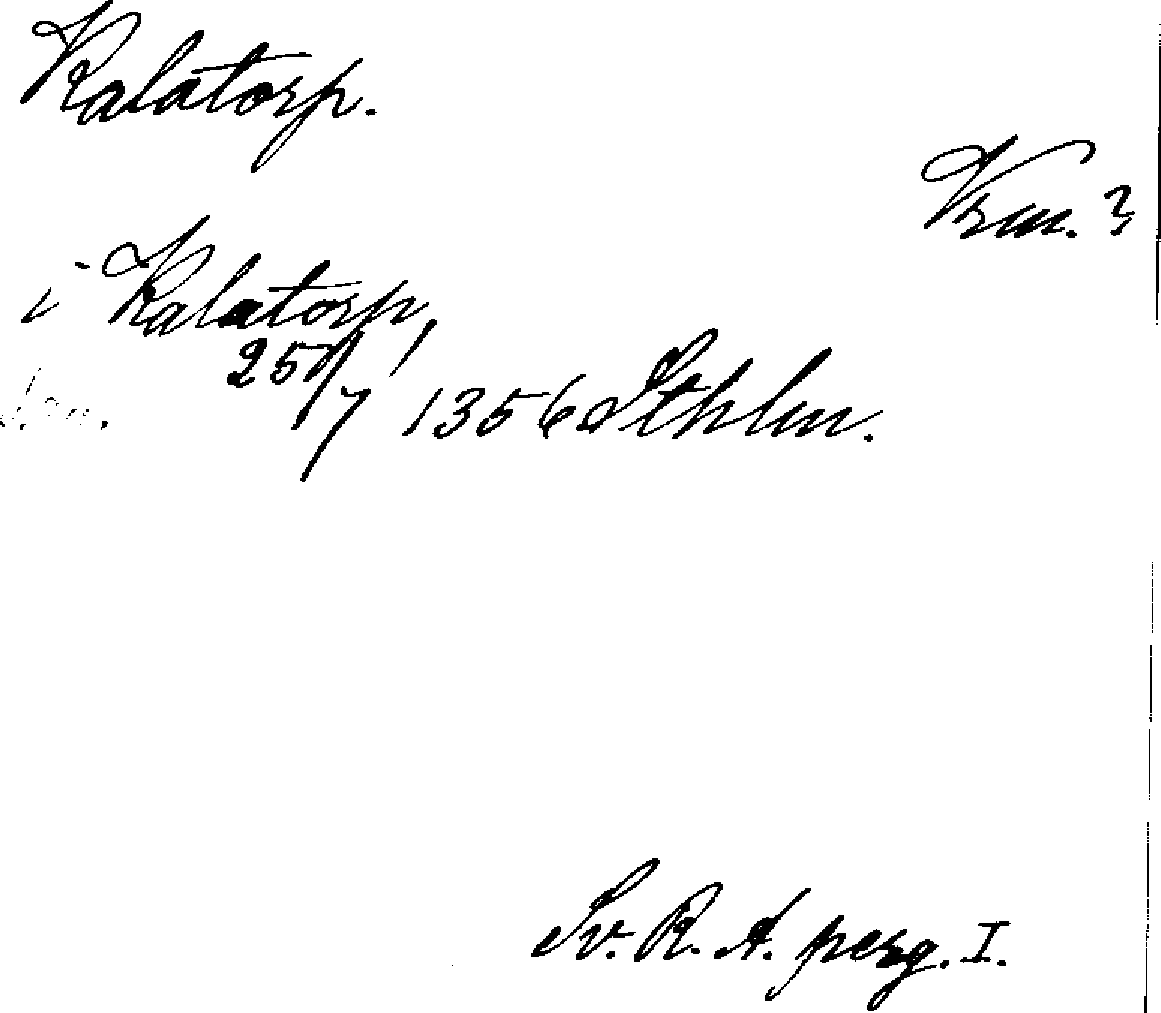 Kalatorp.
Vrm. ?
i Kalatorp,
25/7 1356 Sthlm.
Sv. R. A. perg. I.